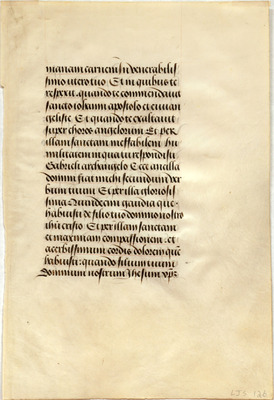 manam carnem in venerabilis
simo utero tuo Et in quibus te
respexit. quando te commendavit
sancto iohanni apostolo et evvan
geliste Et quando te exaltavit
super choros angelorum Et per
illam sanctam ineffabilem hu
militatem in qua tu respondisti
Gabrieli archangelo Ecce ancilla
domini fiat michi secundum ver
bum tuum Et per illa gloriosis
sima Quindecim gaudia que
habuisti de filio tuo domino nostro
ihu cristo Et per illam sanctam
et maximam compassionem. et
acerbissimum cordis dolorem quē
habuisti: quando filium tuum
Dominum nostrum Jhesum xp̄m
LJS 126